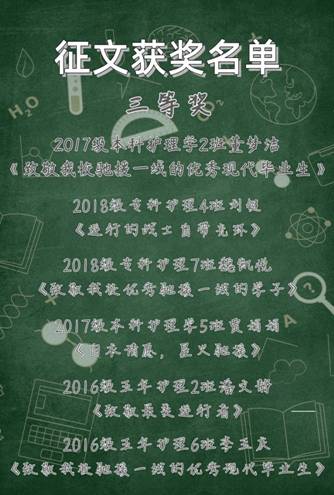 征文获奖名单
三等奖
2017级本科护理学2班董梦洁
《致敬我校驰援一线的优秀现代毕业生》
2018级专科护理4班刘钽
《逆行的战士自带光环》
2018级专科护理7班魏凯悦
《致敬我校优秀驰援一线的学子》
2017级本科护理学5班贾娟娟
《草木情愿,星义驰援》
2016级五年护理2班潘文婧
《致敬最美逆行者》
2016级五年护理6班李玉庆
《致敬我校驰援一线的优秀现代毕业生》
H₂O
A